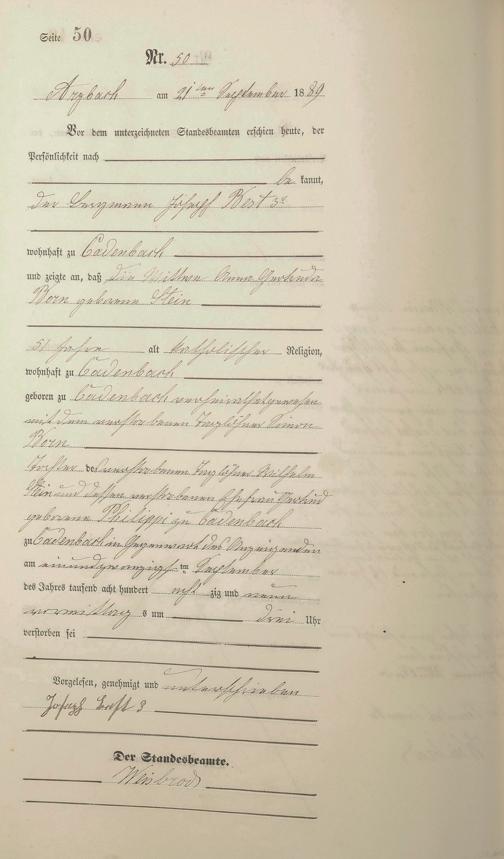 Seite 50
Nr. 50
Arzbach am 21ten September 1889
Vor dem unterzeichneten Standesbeamten erschien heute, der
Persönlichkeit nach
be kannt,
der Bergmann Joseph Best 3r
wohnhaft zu Cadenbach
und zeigte an, daß die Wittwe Anna Gertrude
Born geborene Stein
51 Jahre alt katholischer Religion,
wohnhaft zu Cadenbach
geboren zu Cadenbach verheirathet gewesen
mit dem verstorbenen Taglöhner Simon
Born
Tochter des verstorbenen Taglöhner Wilhelm
Stein und dessen verstorbenen Ehefrau Gertrud
geborene Philippi zu Cadenbach
zu Cadenbach in Gegenwart des Anzeigenden
am einundzwanzigsten September
des Jahres tausend acht hundert acht zig und neun
vormittags um drei Uhr
verstorben sei
Vorgelesen, genehmigt und unterschrieben
Joseph Best 3
Der Standesbeamte.
Weisbrod